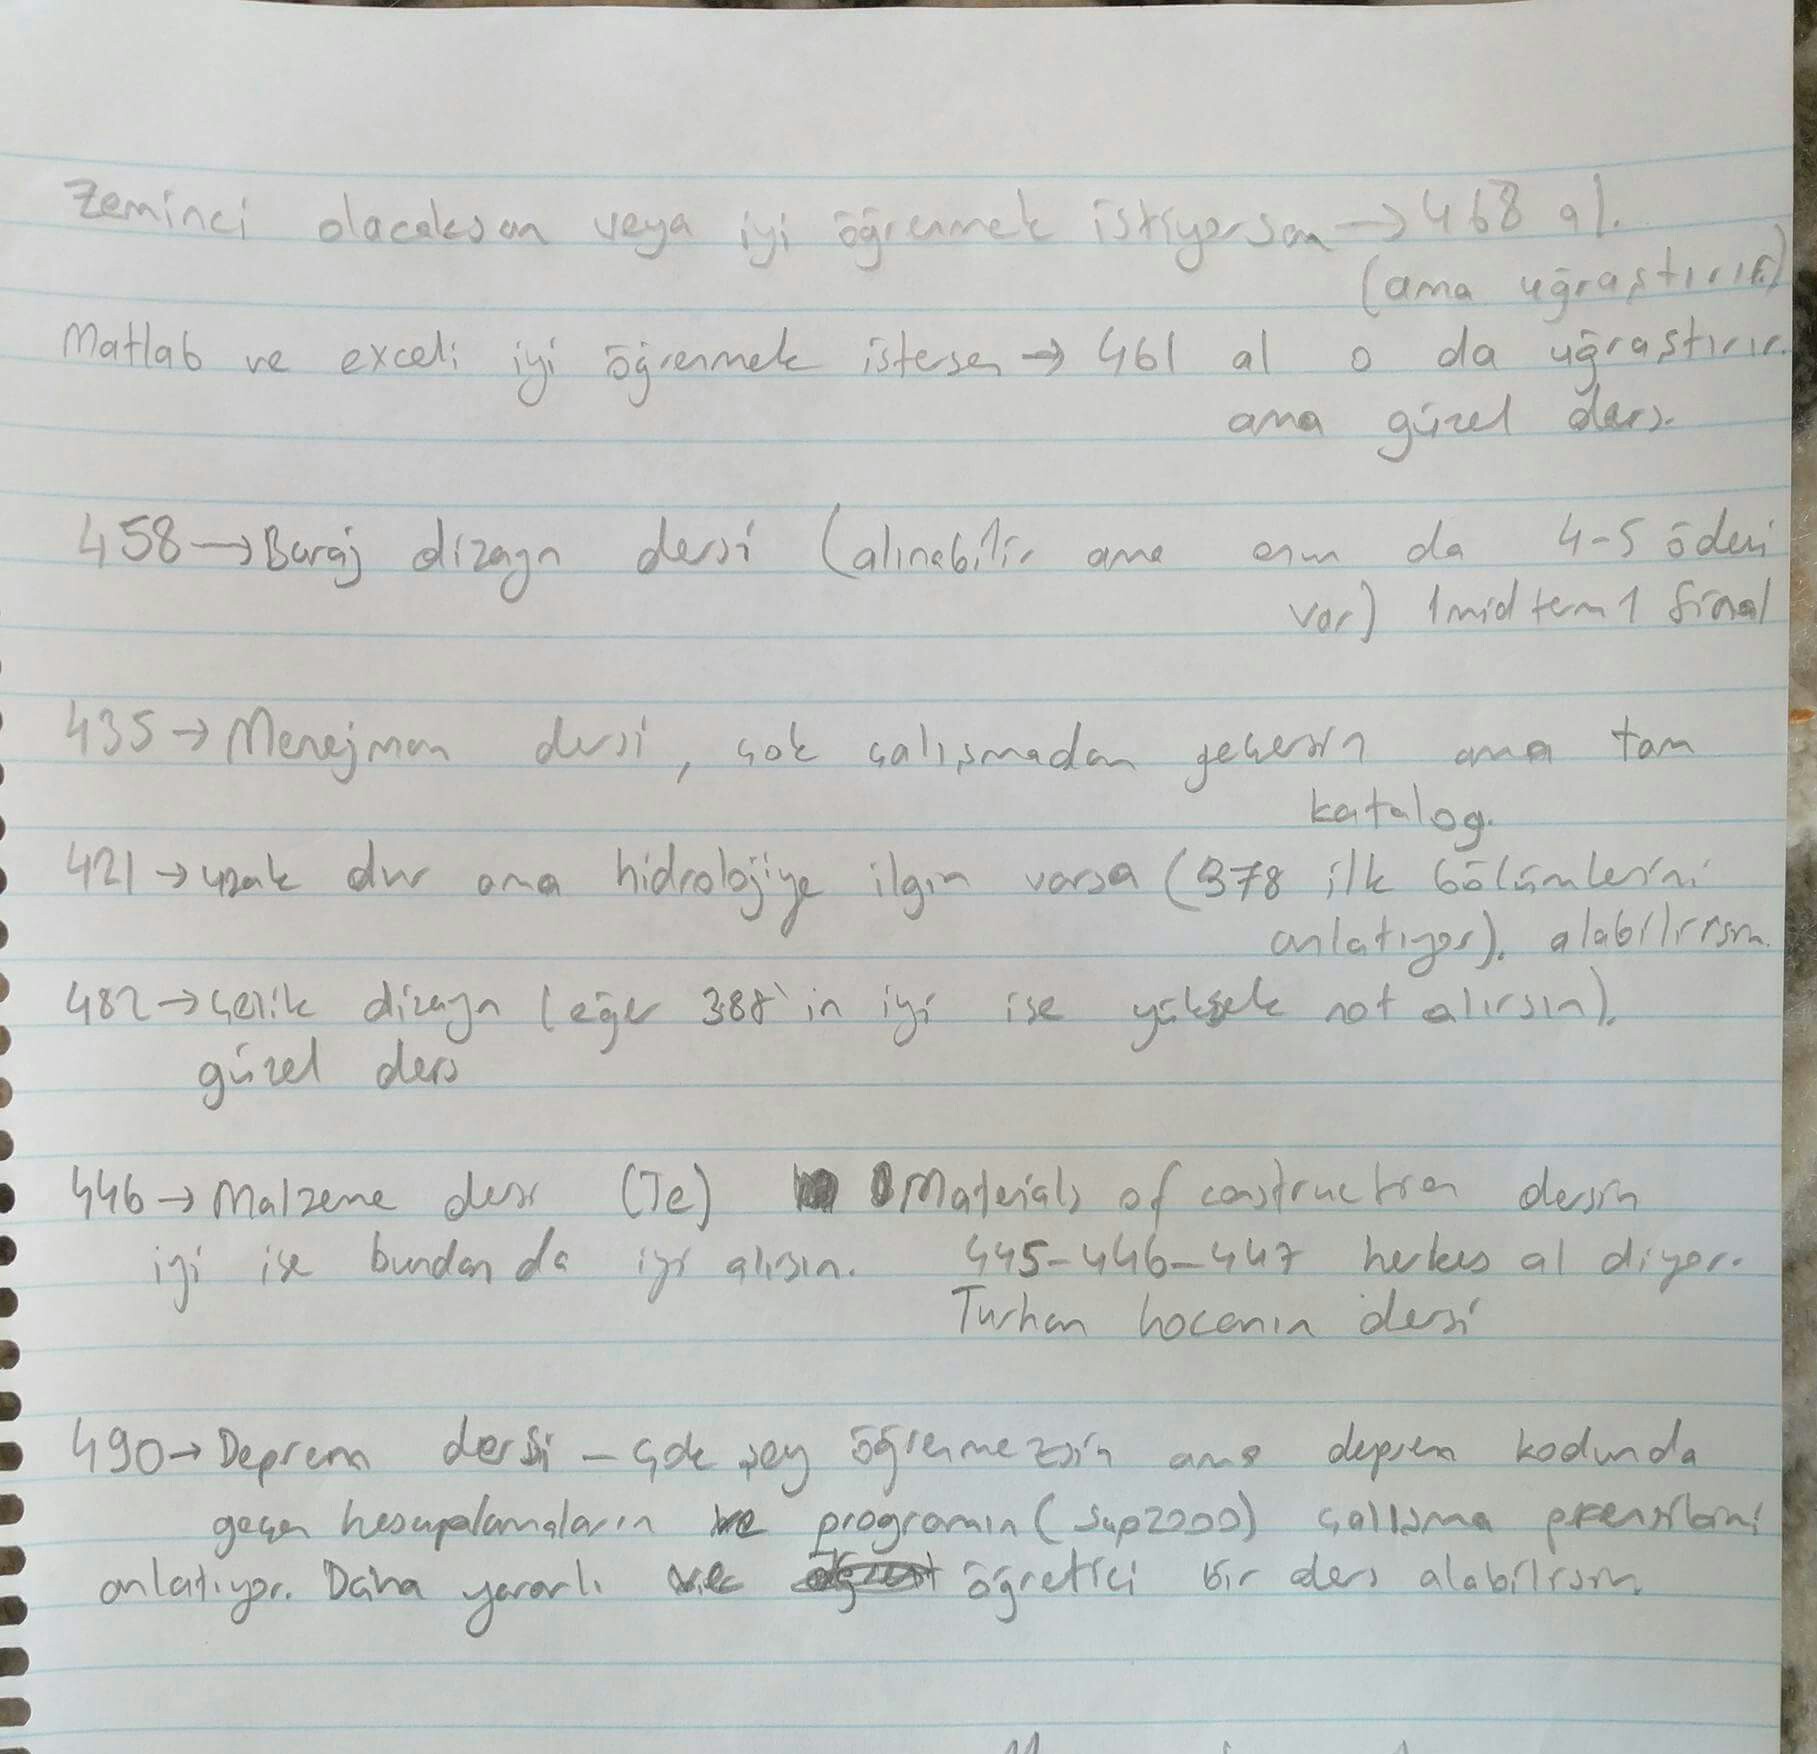 Zeminci olacaksan veya iyi öğrenmek istiyorsan → 468 al.
(ama uğraştırır)
Matlab ve exceli iyi öğrenmek istersen → 461 al o da uğraştırır.
ama güzel ders.
458 → Baraj dizayn dersi (alınabilir ama onun da 4-5 ödevi
var) 1 midterm 1 final
435 → Menejman dersi, çok çalışmadan geçersin ama tam
katalog.
421 → uzak dur ama hidrolojiye ilgin varsa (378 ilk bölümlerini
anlatıyor). alabilirsin.
482 → çelik dizayn (eğer 388'in iyi ise yüksek not alırsın).
güzel ders
446 → Malzeme dersi (Te) Materials of construction dersin
iyi ise bundan da iyi alırsın. 445-446-447 herkes al diyor.
Turhan hocanın dersi
490 → Deprem dersi - çok şey öğrenmezsin ama deprem kodunda
geçen hesaplamaların ve programın (Sap2000) çalışma prensibini
anlatıyor. Daha yararlı ve öğretici bir ders alabilirsin.